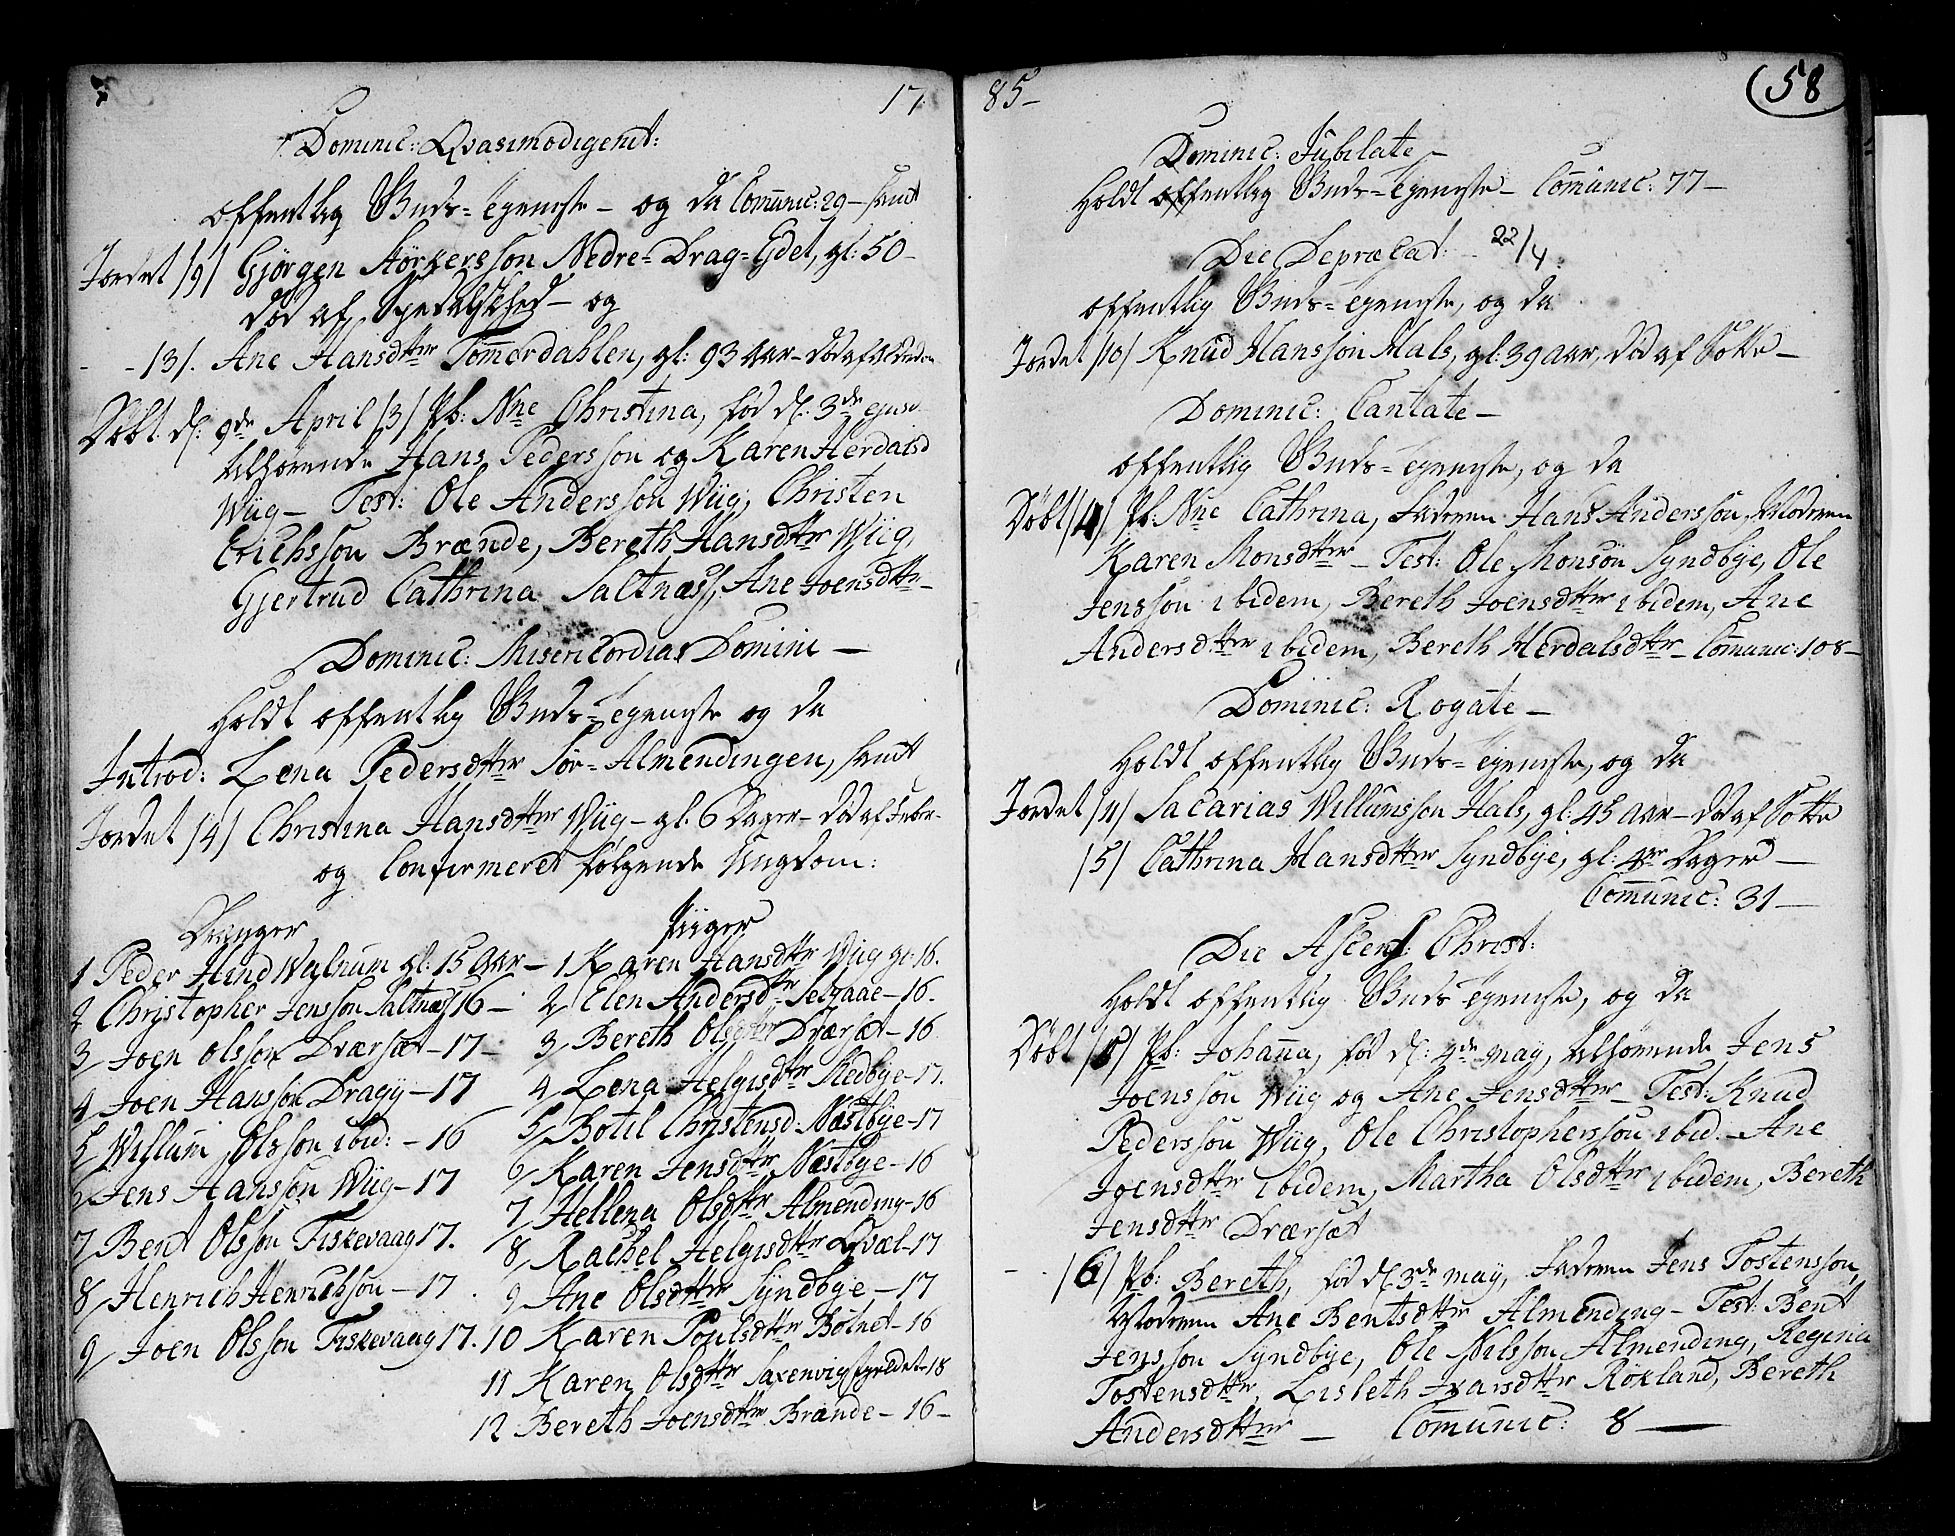 17
Dominic: Qvasimodigenit:
offentlig Guds-Tjeneste - og da Com̄unic: 29 - samt
Jordet /9/ Gjørgen Størkersson Nedre-Drag-Ejdet, gl: 50 -
død af Spedalskhed - og
- - 13/. Ane Hansdtter Tom̄erdahlen, gl: 93 aar - død af
Døbt d: 9de April /3/ Pb: Nne Christina, fød d: 3de ejusd
tilhørende Hans Pedersson og Karen Herdalsd
Wiig - Test: Ole Andersson Wiig, Christen
Erichsson Brænde, Bereth Hansdtter Wiig,
Gjertrud Cathrina Saltnæss, Ane Joensdtter -
Dominic: Misericordias Domini -
Holdt offentlig Guds-Tjeneste og da
Introd: Lena Pedersdtter Sør-Almendingen, samt
Jordet /4/ Christina Hansdtter Wiig - gl: 6 Dager - død af
og Confirmeret følgende Ungdom:
Drenger
1 Peder Hind Walnum gl: 15 aar -
2 Christopher Jensson Saltnæss 16 -
3 Joen Olsson Dværsæt - 17 -
4 Joen Hansson Dragy - 17
5 Willum Olsson ibid: - 16
6 Jens Hansson Wiig - 17
7 Bent Olsson Fiskevaag 17.
8 Henrich Henrichsson - 17
9 Joen Olsson Fiskevaag 17.
Piiger
1 Karen Hansdtter Wiig gl: 16.
2 Elen Andersdtr Selgaae - 16.
3 Bereth Olsdtter Dværsæt - 16
4 Lena Helgisdtter Medbye - 17.
5 Botil Christensd: Næstbye - 17
6 Karen Jensdtter Næstbye - 16
7 Hellena Olsdtter Almending - 16
8 Rachel Helgisdtter Qvæl - 17
9 Ane Olsdtter Syndbye - 17
10 Karen Poulsdtter Bolnet - 16
11 Karen Olsdtter Saxenvig - 18
12 Bereth Joensdtter Brænde - 16 -
85 -
58
Dominic: Jubilate -
Holdt offentlig Guds-Tjeneste - Com̄unic: 77 -
Die Deprecat: - 22/4
offentlig Guds-Tjeneste, og da
Jordet /10/ Knud Hansson Hals, gl: 39 aar, død af Sotte -
Dominic: Cantate -
offentlig Guds-Tjeneste, og da
Døbt /4/ Pb: Nne Cathrina, Faderen Hans Andersson, Moderen
Karen Monsdtter - Test: Ole Monsøn Syndbye, Ole
Jensson ibidem, Bereth Joensdtter ibidem, Ane
Andersdtter ibidem, Bereth Herdalsdtter - Com̄unic: 108 -
Dominic: Rogate -
Holdt offentlig Guds-Tjeneste, og da
Jordet /11/ Sacarias Willumsson Hals, gl: 45 aar - død af Sotte
/5/ Cathrina Hansdtter Syndbye, gl: Dager -
Com̄unic: 31 -
Die Ascens: Christ:
Holdt offentlig Guds Tjeneste, og da
Døbt /5/ Pb: Johan̄a, fød d: 4de May, tilhørende Jens
Joensson Wiig og Ane Jensdtter - Test: Knud
Pedersson Wiig, Ole Christophersson ibid - Ane
Joensdtter ibidem, Martha Olsdtter ibidem, Bereth
Jensdtter Dværsæt
- - /6/ Pb: Bereth, fød d: 3de May, Faderen Jens Tostensson,
Moderen Ane Bentsdtter Almending - Test: Bent
Jensson Syndbye, Ole Nilsson Almending, Regina
Tostensdtter, Lisbeth Ivarsdtter Røkland, Bereth
Andersdtter - Com̄unic: 8 -